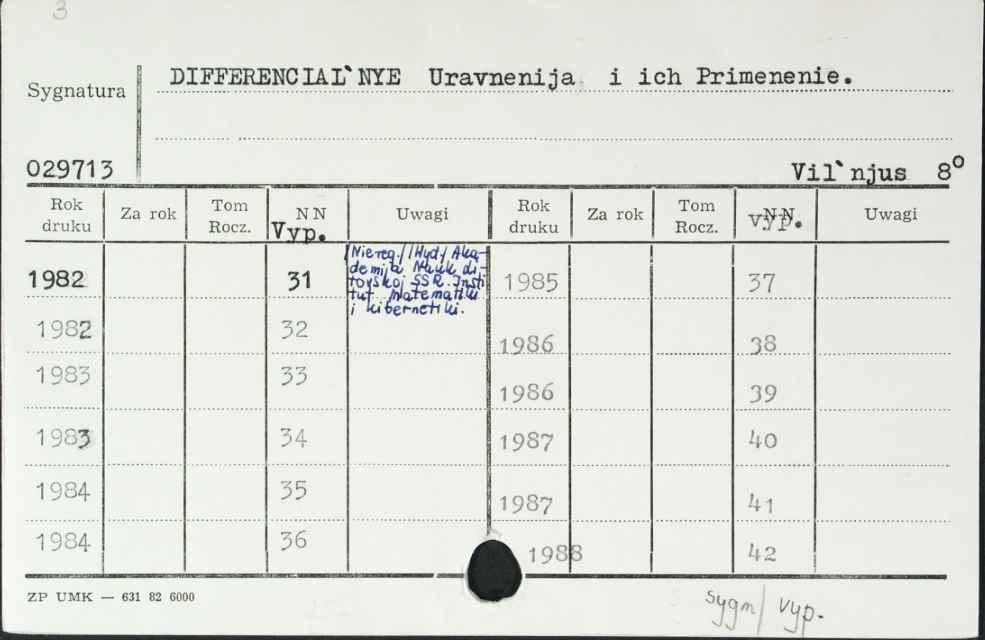 3
DIFFERENCIAL`NYE Uravnenija i ich Primenenie.
Sygnatura
029713
Vil`njus 8°
Rok druku Za rok Tom Rocz. NN Vyp. Uwagi Rok druku Za rok Tom Rocz. NN vyp. Uwagi
1982 31
Niereg./Wyd/ Aka-
demija Nauk Li-
tovskoj SSR. Insti
tut Matematiki
i kibernetiki.
1985 37
1982 32
1986 38
1983 33
1986 39
1983 34
1987 40
1984 35
1987 41
1984 36
1988 42
ZP UMK — 631 82 6000
sygn/ vyp.